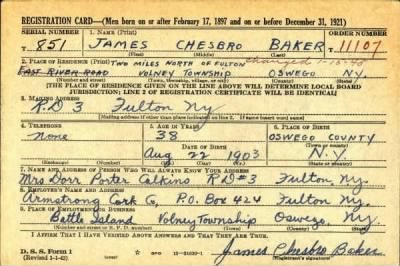 REGISTRATION CARD—(Men born on or after February 17, 1897 and on or before December 31, 1921)
SERIAL NUMBER 1. NAME (Print) ORDER NUMBER
T- 851 JAMES CHESBRO BAKER T- 11107
(First) (Middle) (Last)
2. PLACE OF RESIDENCE (Print) TWO MILES NORTH OF FULTON changed 1-15-43
EAST RIVER ROAD VOLNEY TOWNSHIP OSWEGO NY.
(Number and street) (Town, township, village, or city) (County) (State)
[THE PLACE OF RESIDENCE GIVEN ON THE LINE ABOVE WILL DETERMINE LOCAL BOARD
JURISDICTION; LINE 2 OF REGISTRATION CERTIFICATE WILL BE IDENTICAL]
3. MAILING ADDRESS
R.D 3 Fulton Ny
[Mailing address if other than place indicated on line 2. If same insert word same]
4. TELEPHONE 5. AGE IN YEARS 6. PLACE OF BIRTH
None 38 OSWEGO COUNTY
DATE OF BIRTH (Town or county)
Aug 22 1903 N.Y.
(Exchange) (Number) (Mo.) (Day) (Yr.) (State or country)
7. NAME AND ADDRESS OF PERSON WHO WILL ALWAYS KNOW YOUR ADDRESS
Mrs Dorr Porter Calkins R.D#3 Fulton Ny.
8. EMPLOYER'S NAME AND ADDRESS
Armstrong Cork Co. P.O. Box 424 Fulton Ny.
9. PLACE OF EMPLOYMENT OR BUSINESS
Battle Island Volney Township Oswego, Ny
(Number and street or R. F. D. number) (Town) (County) (State)
I AFFIRM THAT I HAVE VERIFIED ABOVE ANSWERS AND THAT THEY ARE TRUE.
D. S. S. Form 1
(Revised 1-1-42) (over) GPO 16-21630-1
James Chesbro Baker
(Registrant's signature)